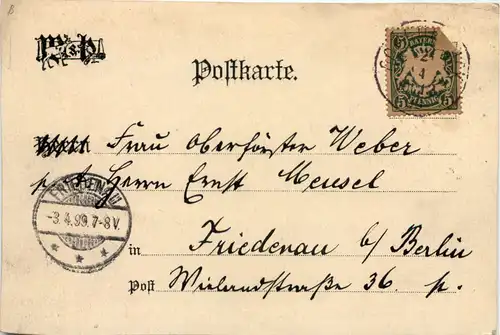 Postkarte.
BAYERN
5 5
PFENNIG
Frau Oberförster Weber
Herrn Ernst Meusel
FRIEDENAU
-3.4.99.7-8V.
in Friedenau b/ Berlin
Post Wielandstraße 36. p.